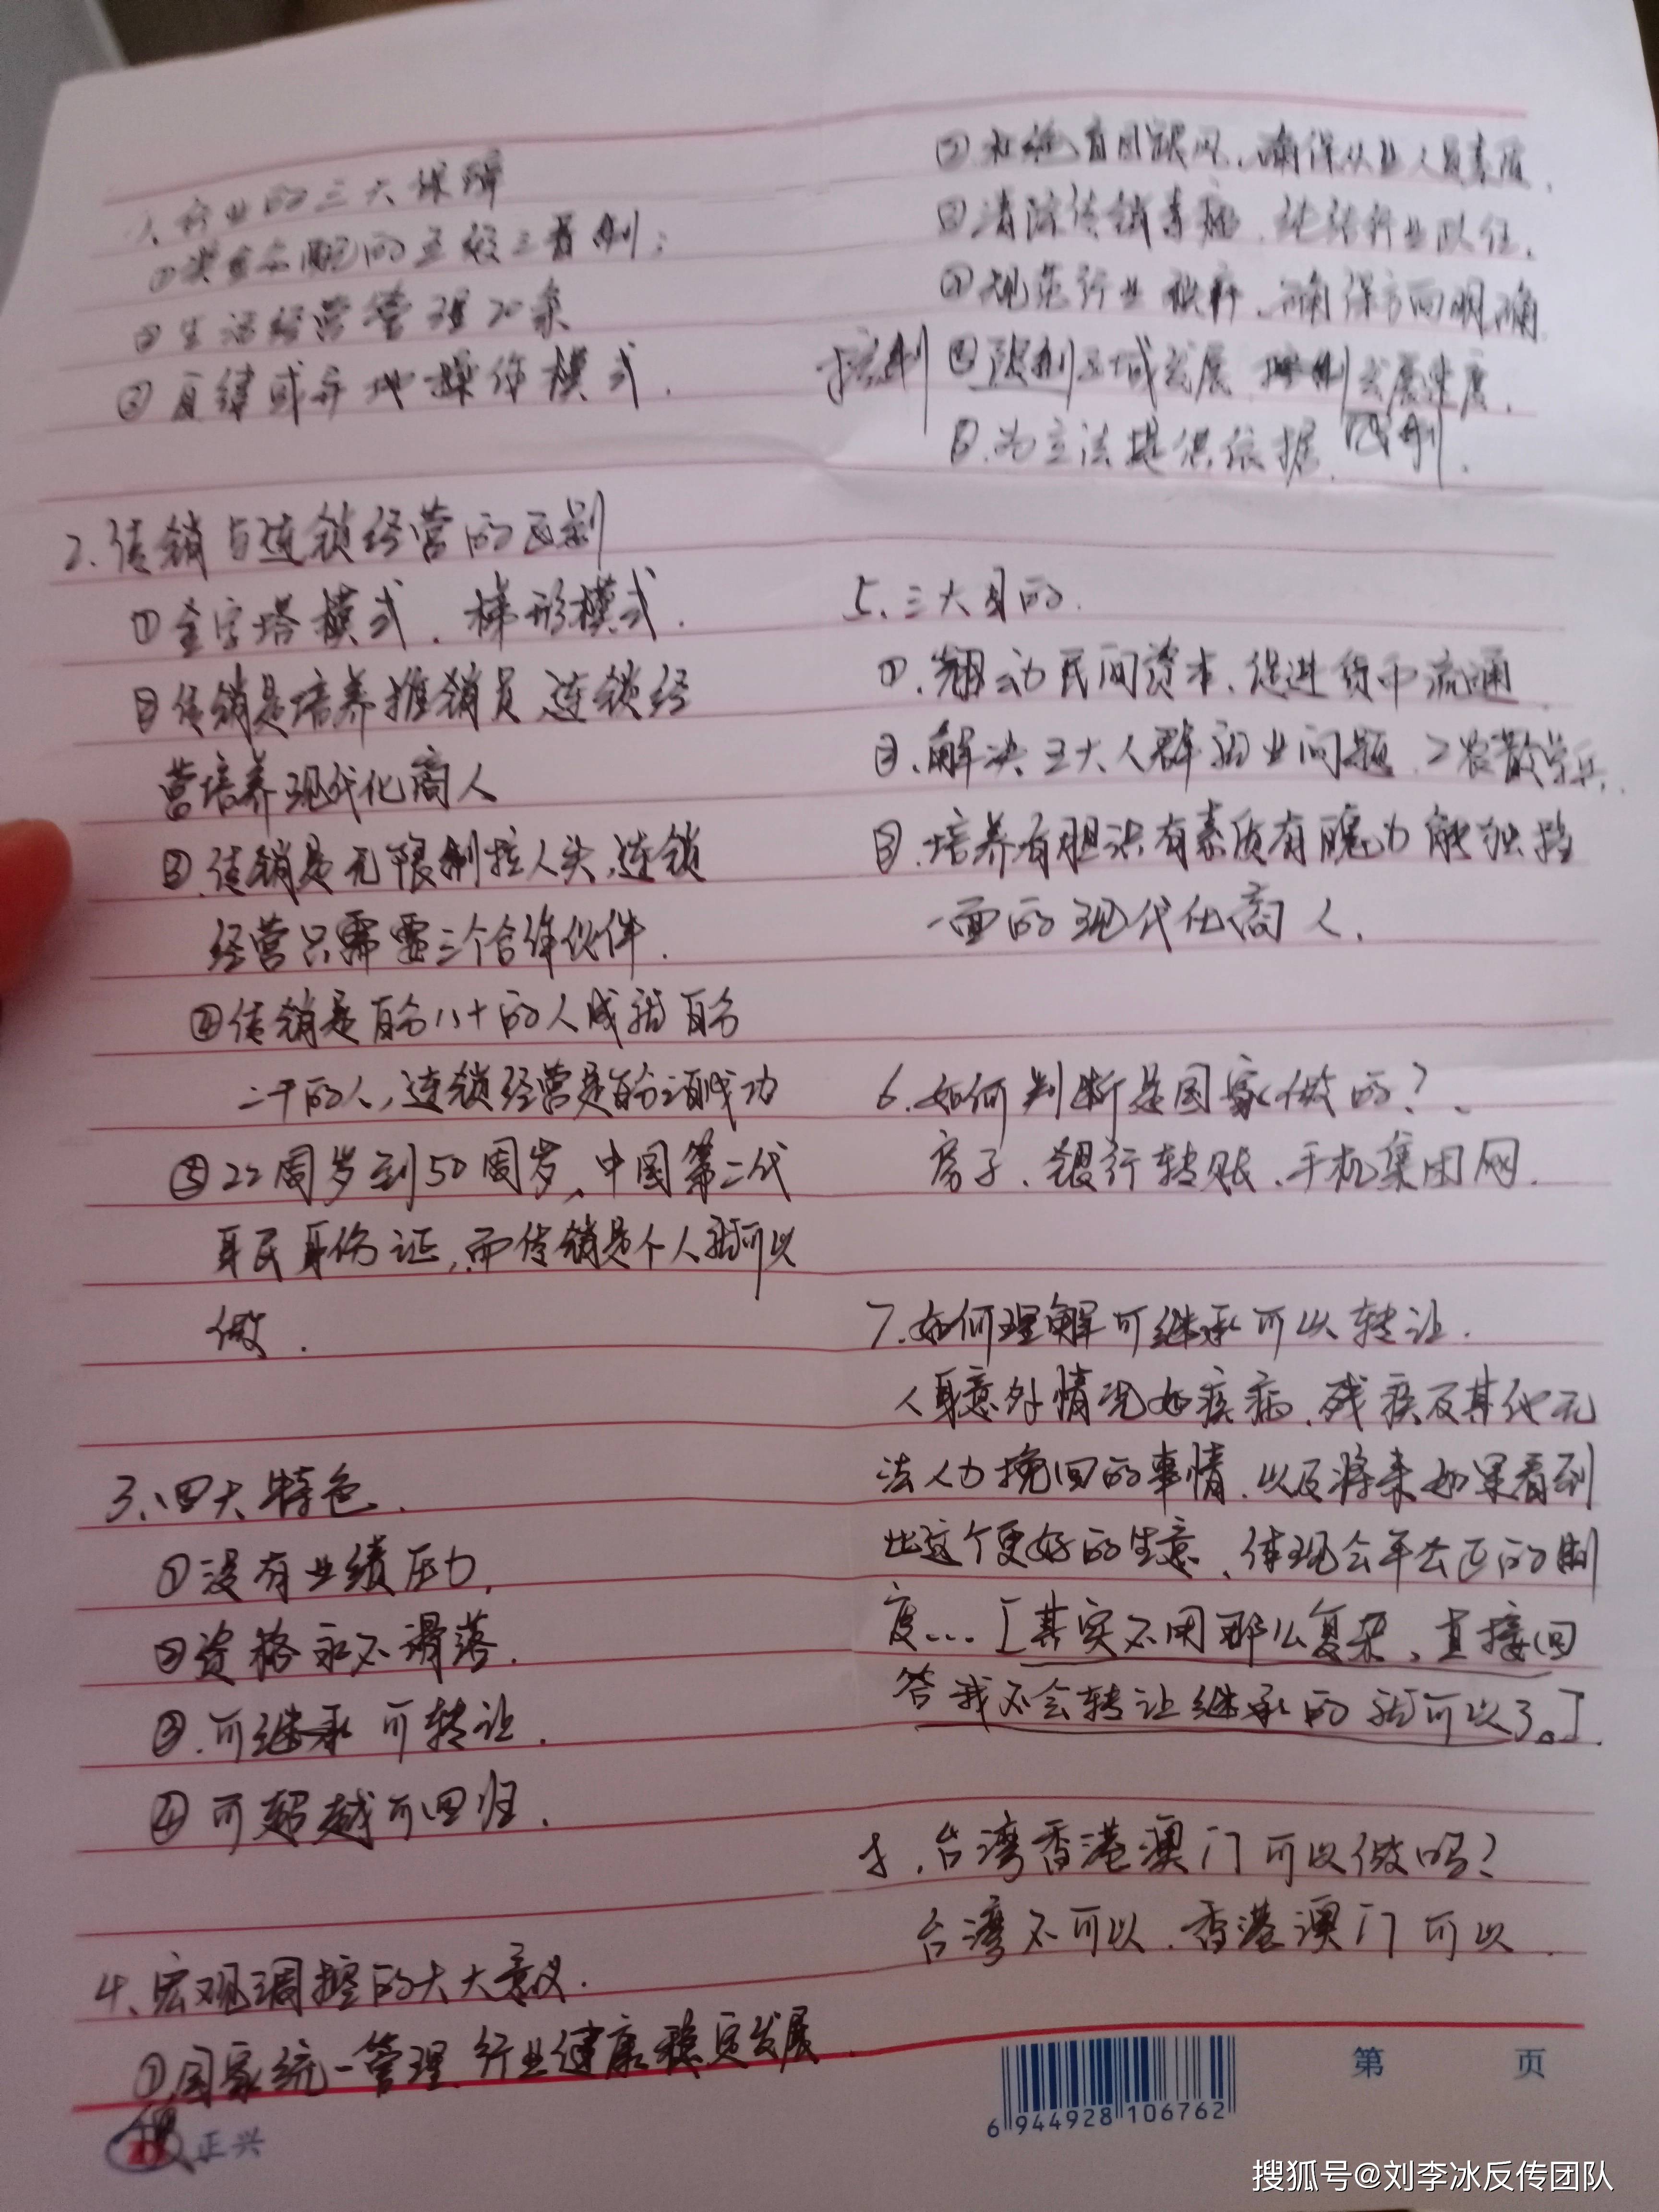 1、行业的三大保障
①奖金分配的五级三晋制；
②生活经营管理20条
③自律或异地操作模式．
2.传销与连锁经营的区别
①金字塔模式．梯形模式．
②传销是培养推销员、连锁经
营培养现代化商人
③.传销是无限制拉人头,连锁
经营只需要三个合作伙伴．
④传销是百分八十的人成就百分
二十的人,连锁经营是百分之百成功
⑤22周岁到50周岁、中国第二代
身民身份证,而传销是个人就可以
做．
3、四大特色．
①没有业绩压力,
②资格永不滑落．
③.可继承可转让．
④可超越可回归．
4、宏观调控的六大意义．
①国家统一管理、行业健康稳定发展．
②杜绝盲目跟风、确保从业人员素质．
③清除传销毒瘤．纯洁行业队伍．
④规范行业秩序、确保方向明确
控制⑤限制区域发展 控制发展速度．
⑥.为立法提供依据．
5、三大目的．
①.翘动民间资本、促进货币流通
②.解决五大人群就业问题．工农散学兵．
③.培养有胆识有素质有魄力能独挡
一面的现代化商人．
6.如何判断是国家做的？
房子、银行转账、手机集团网．
7.如何理解可继承可以转让．
人身意外情况如疾病、残疾及其他无
法人力挽回的事情、以及将来如果看到
比这个更好的生意、体现公平公正的制
度…[其实不用那么复杂、直接回
答我不会转让继承的就可以了。]．
8．台湾香港澳门可以做吗？
台湾不可以．香港澳门可以．
正兴
6 944928 106762
第 页
搜狐号@刘李冰反传团队